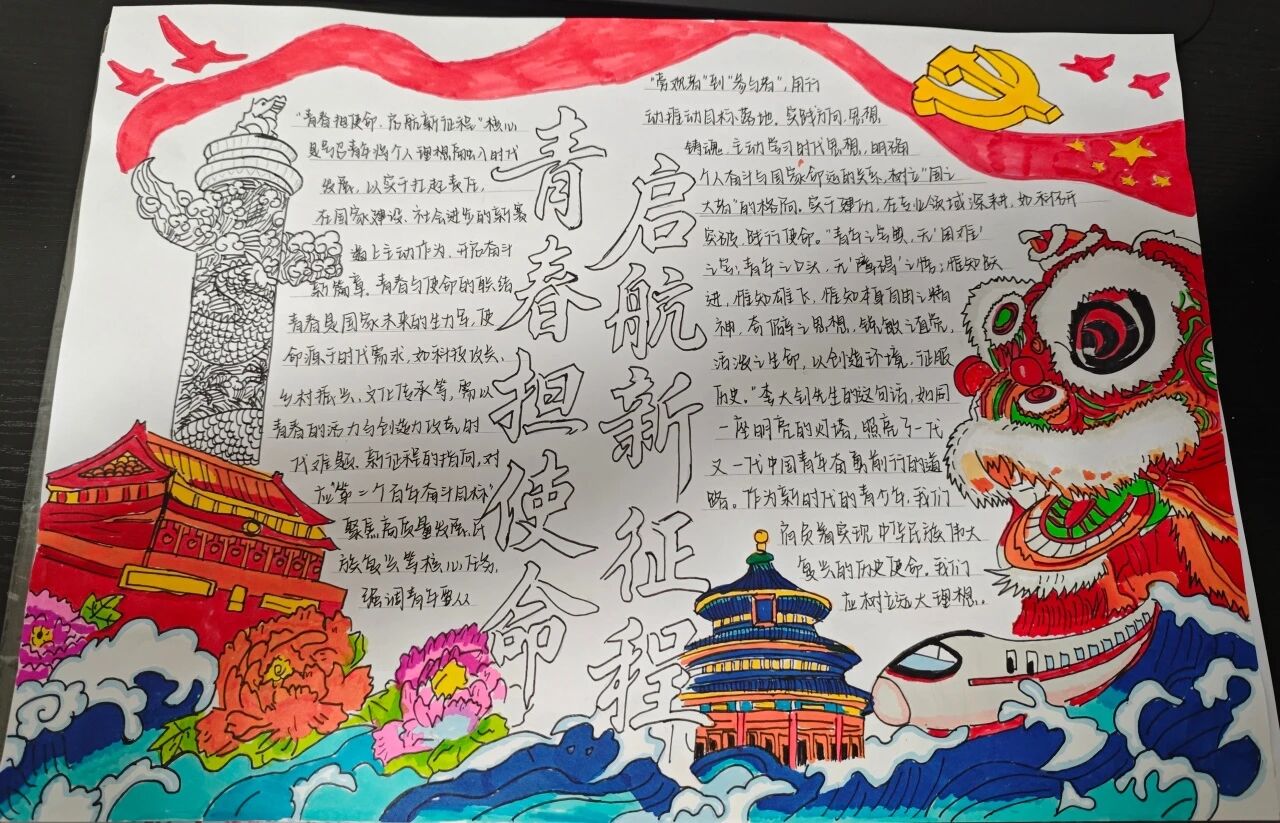 青春担使命
启航新征程
"青春担使命，启航新征程"核心
是号召青年将个人理想融入时代
发展，以实干扛起责任，
在国家建设、社会进步的新赛
道上主动作为，开启奋斗
新篇章。青春与使命的联结
青春是国家未来的生力军，使
命源于时代需求，如科技攻关、
乡村振兴、文化传承等，需以
青春的活力与创造力攻克时
代难题、新征程的指向，对
应"第二个百年奋斗目标"
聚焦高质量发展、民
族复兴等核心任务，
强调青年要从
"旁观者"到"参与者"，用行
动推动目标落地。实践方向：思想
铸魂，主动学习时代思想，明确
个人奋斗与国家命运的关系，树立"国之
大者"的格局。实干建功，在专业领域深耕，如科研
突破，践行使命。"青年之字典，无'困难'
之字；青年之口头，无'障碍'之语；惟知跃
进，惟知雄飞，惟知本身自由之精
神，奇僻之思想，锐敏之直觉，
活泼之生命，以创造环境，征服
历史。"李大钊先生的这句话，如同
一座明亮的灯塔，照亮了一代
又一代中国青年奋勇前行的道
路。作为新时代的青少年，我们
肩负着实现中华民族伟大
复兴的历史使命。我们
应树立远大理想。